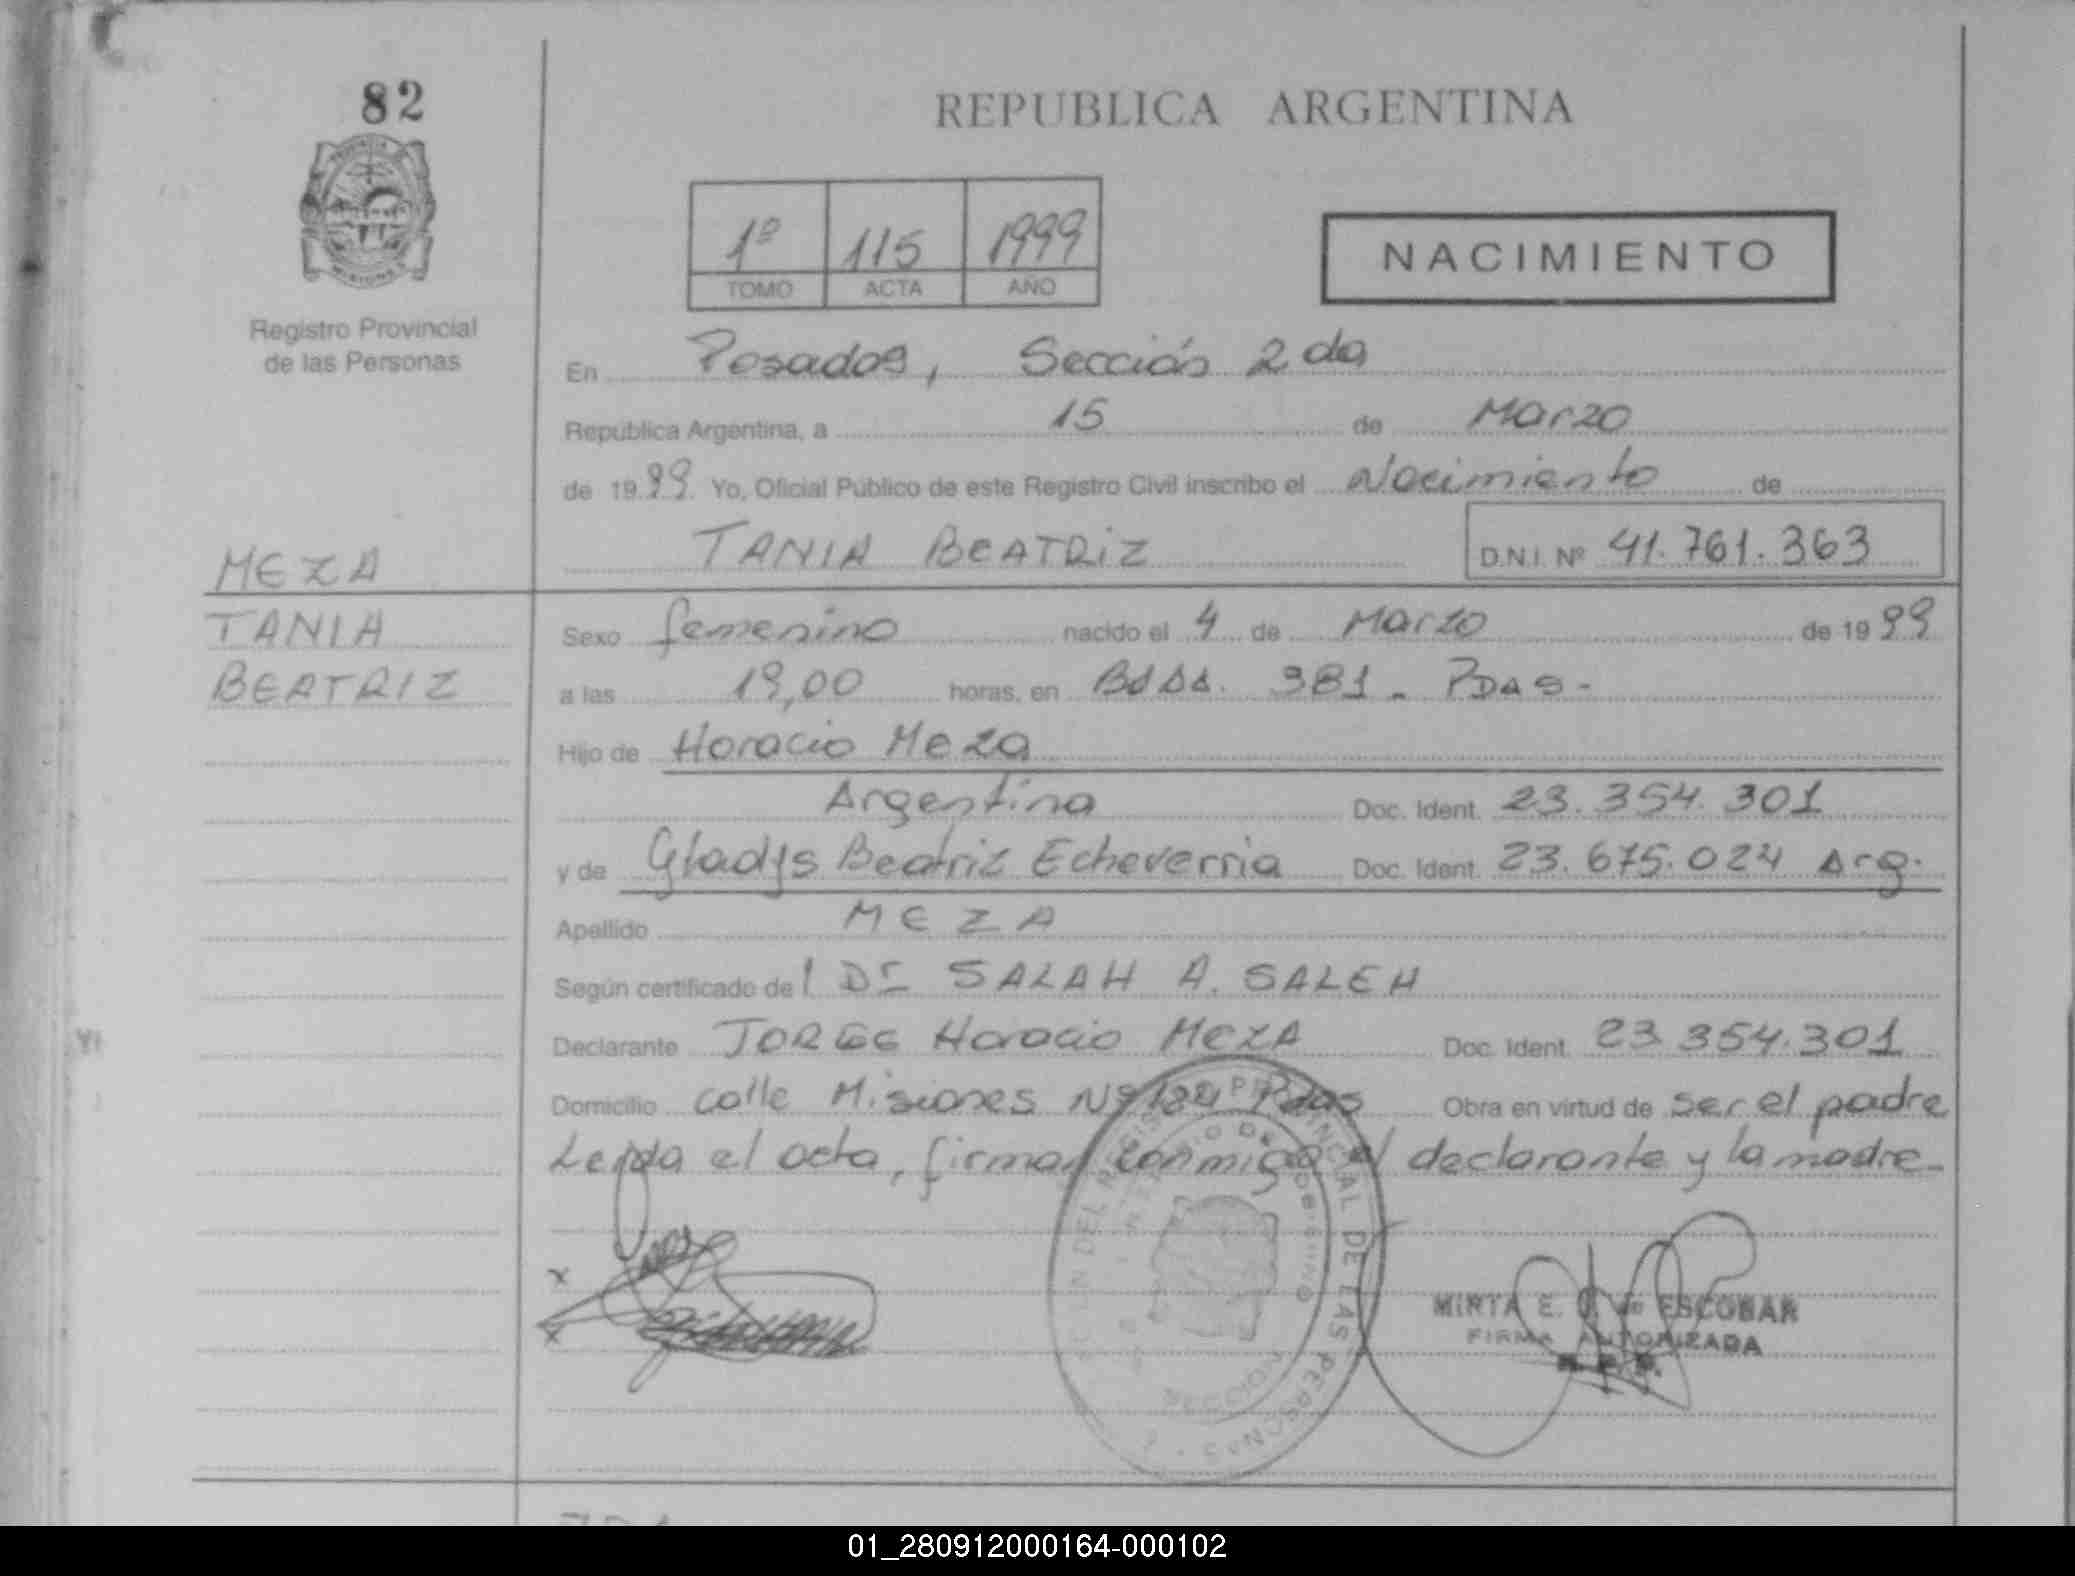 82
REPUBLICA ARGENTINA
1º 115 1999
TOMO ACTA AÑO
NACIMIENTO
Registro Provincial
de las Personas
En Posadas, Sección 2da
República Argentina, a 15 de Marzo
de 1999 Yo, Oficial Público de este Registro Civil inscribo el Nacimiento de
TANIA BEATRIZ D.N.I. Nº 41.761.363
MEZA
TANIA
BEATRIZ
Sexo femenino nacido el 4 de Marzo de 1999
a las 19,00 horas, en 981 - PDAS -
Hijo de Horacio Meza
Argentina Doc. Ident. 23.354.301
y de Gladys Beatriz Echeverria Doc. Ident. 23.675.024 Arg.
Apellido MEZA
Según certificado del Dr SALAH A. SALEH
Declarante JORGE Horacio MEZA Doc. Ident. 23.354.301
Domicilio calle Misiones Nº Pdas Obra en virtud de ser el padre
Leída el acta, firman conmigo el declarante y la madre.-
DEL REGISTRO PROVINCIAL DE LAS PERSONAS
SECCION
MIRTA E. de ESCOBAR
FIRMA AUTORIZADA
01_280912000164-000102